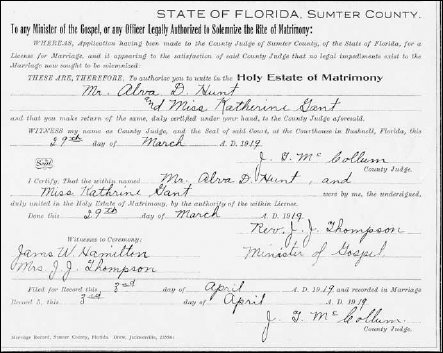 STATE OF FLORIDA, SUMTER COUNTY.
To any Minister of the Gospel, or any Officer Legally Authorized to Solemnize the Rite of Matrimony:
WHEREAS, Application having been made to the County Judge of Sumter County, of the State of Florida, for
a License for Marriage, and it appearing to the satisfaction of said County Judge that no legal impediments exist to the
Marriage now sought to be solemnized:
THESE ARE, THEREFORE, To authorize you to unite in the Holy Estate of Matrimony
Mr. Alva D Hunt
and Miss Katherine Gant
and that you make return of the same, duly certified under your hand, to the County Judge aforesaid.
WITNESS my name as County Judge, and the Seal of said Court, at the Courthouse in Bushnell, Florida, this
29th day of March A. D. 1919
J. T. McCollum
County Judge.
Seal
I Certify, That the within named Mr. Alva D. Hunt, and
Miss Kathrine Gant were by me, the undersigned,
duly united in the Holy Estate of Matrimony, by the authority of the within License.
Done this 29th day of March A. D. 1919
Rev. J. J. Thompson
Witnesses to Ceremony: Minister of Gospel
James W. Hamilton
Mrs. J. J. Thompson
Filed for Record this 3rd day of April A. D. 1919 and recorded in Marriage
Record 5, this 3rd day of April A. D. 1919.
J. T. McCollum
County Judge.
Marriage Record, Sumter County, Florida. Drew, Jacksonville,